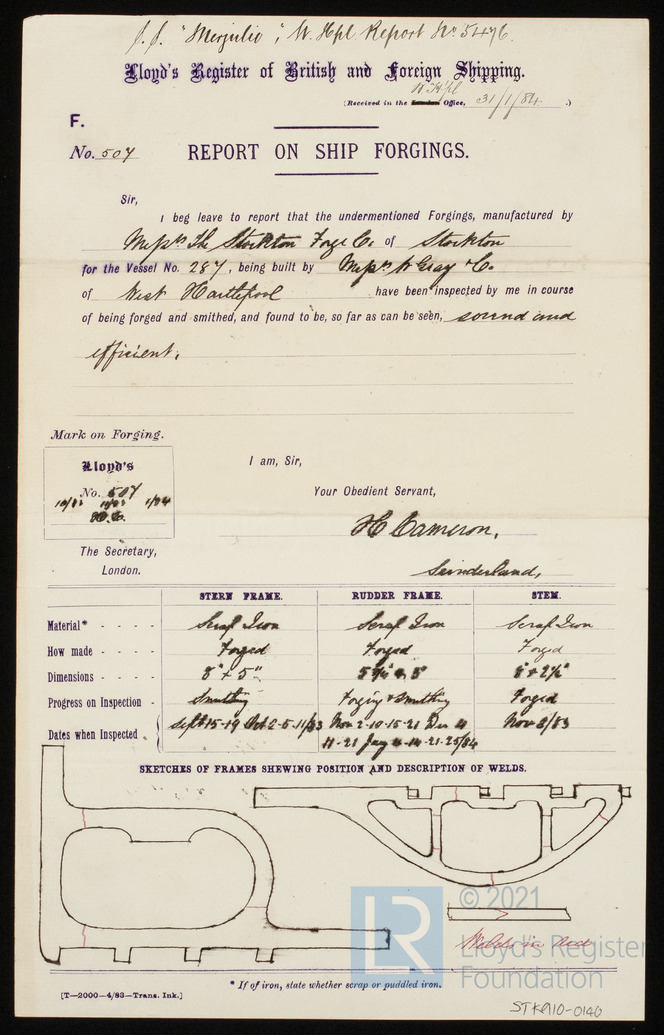 S.S. "Merjulio", W. Hpl Report No. 5476.
Lloyd's Register of British and Foreign Shipping.
W. Hpl
(Received in the London Office, 31/1/84.)
F.
No. 507 REPORT ON SHIP FORGINGS.
Sir,
I beg leave to report that the undermentioned Forgings, manufactured by
Messrs The Stockton Forge Co. of Stockton
for the Vessel No. 287, being built by Messrs W Gray & Co.
of West Hartlepool have been inspected by me in course
of being forged and smithed, and found to be, so far as can be seen, sound and
efficient.
Mark on Forging.
Lloyd's
No. 507
10/83 11/83 1/84
H.C.
I am, Sir,
Your Obedient Servant,
H Cameron,
Sunderland,
The Secretary,
London.
STERN FRAME. RUDDER FRAME. STEM.
Material* - - - - Scrap Iron Scrap Iron Scrap Iron
How made - - - - Forged Forged Forged
Dimensions - - - - 8" x 5" 8" x 2½"
Progress on Inspection - Smithing Forging & Smithing Forged
Dates when Inspected Sept 15-19 Oct 2-5-11/83 Nov 2-10-15-21 Dec 4 Nov 8/83
11-21 Jany 4-14-21-25/84
SKETCHES OF FRAMES SHEWING POSITION AND DESCRIPTION OF WELDS.
Welds in Red
© 2021
LR
Lloyd's Register
Foundation
* If of iron, state whether scrap or puddled iron.
[T—2000—4/83—Trans. Ink.]
STK910-0140